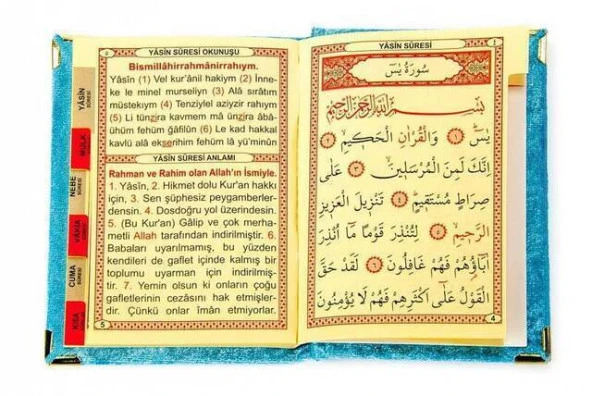 YÂSÎN SÛRESİ OKUNUŞU
Bismillâhirrahmânirrahıym.
Yâsîn (1) Vel kur'ânil hakiym (2) İnne-
ke le minel murseliyn (3) Alâ sırâtım
müstekıym (4) Tenziylel aziyzir rahıym
(5) Li tünzira kavmem mâ ünzira âbâ-
ühüm fehüm ğâfilûn (6) Le kad hakkal
kavlü alâ ekserihim fehüm lâ yü'minûn
YÂSİN SÛRESİ ANLAMI
Rahman ve Rahim olan Allah'ın İsmiyle.
1. Yâsîn, 2. Hikmet dolu Kur'an hakkı
için, 3. Sen şüphesiz peygamberler-
densin. 4. Dosdoğru yol üzerindesin.
5. (Bu Kur'an) Gâlip ve çok merha-
metli Allah tarafından indirilmiştir. 6.
Babaları uyarılmamış, bu yüzden
kendileri de gaflet içinde kalmış bir
toplumu uyarman için indirilmiş-
tir. 7. Yemin olsun ki onların çoğu
gafletlerinin cezasını hak etmişler-
dir. Çünkü onlar îman etmiyorlar.
5
YÂSİN
SÛRESİ
MÜLK
NEBE
SÛRESİ
VAKIA
SÛRESİ
CUMA
SÛRESİ
KISA
YÂSİN SÛRESİ
سُورَةُ يٰسٓ
بِسْمِ اللّٰهِ الرَّحْمٰنِ الرَّحِيمِ
يٰسٓ ﴿١﴾ وَالْقُرْاٰنِ الْحَكِيمِ ﴿٢﴾
اِنَّكَ لَمِنَ الْمُرْسَلِينَ ﴿٣﴾ عَلٰى
صِرَاطٍ مُسْتَقِيمٍ ﴿٤﴾ تَنْزِيلَ الْعَزِيزِ
الرَّحِيمِ ﴿٥﴾ لِتُنْذِرَ قَوْمًا مَٓا اُنْذِرَ
اٰبَٓاؤُ۬هُمْ فَهُمْ غَافِلُونَ ﴿٦﴾ لَقَدْ حَقَّ
الْقَوْلُ عَلٰٓى اَكْثَرِهِمْ فَهُمْ لَا يُؤْمِنُونَ
4